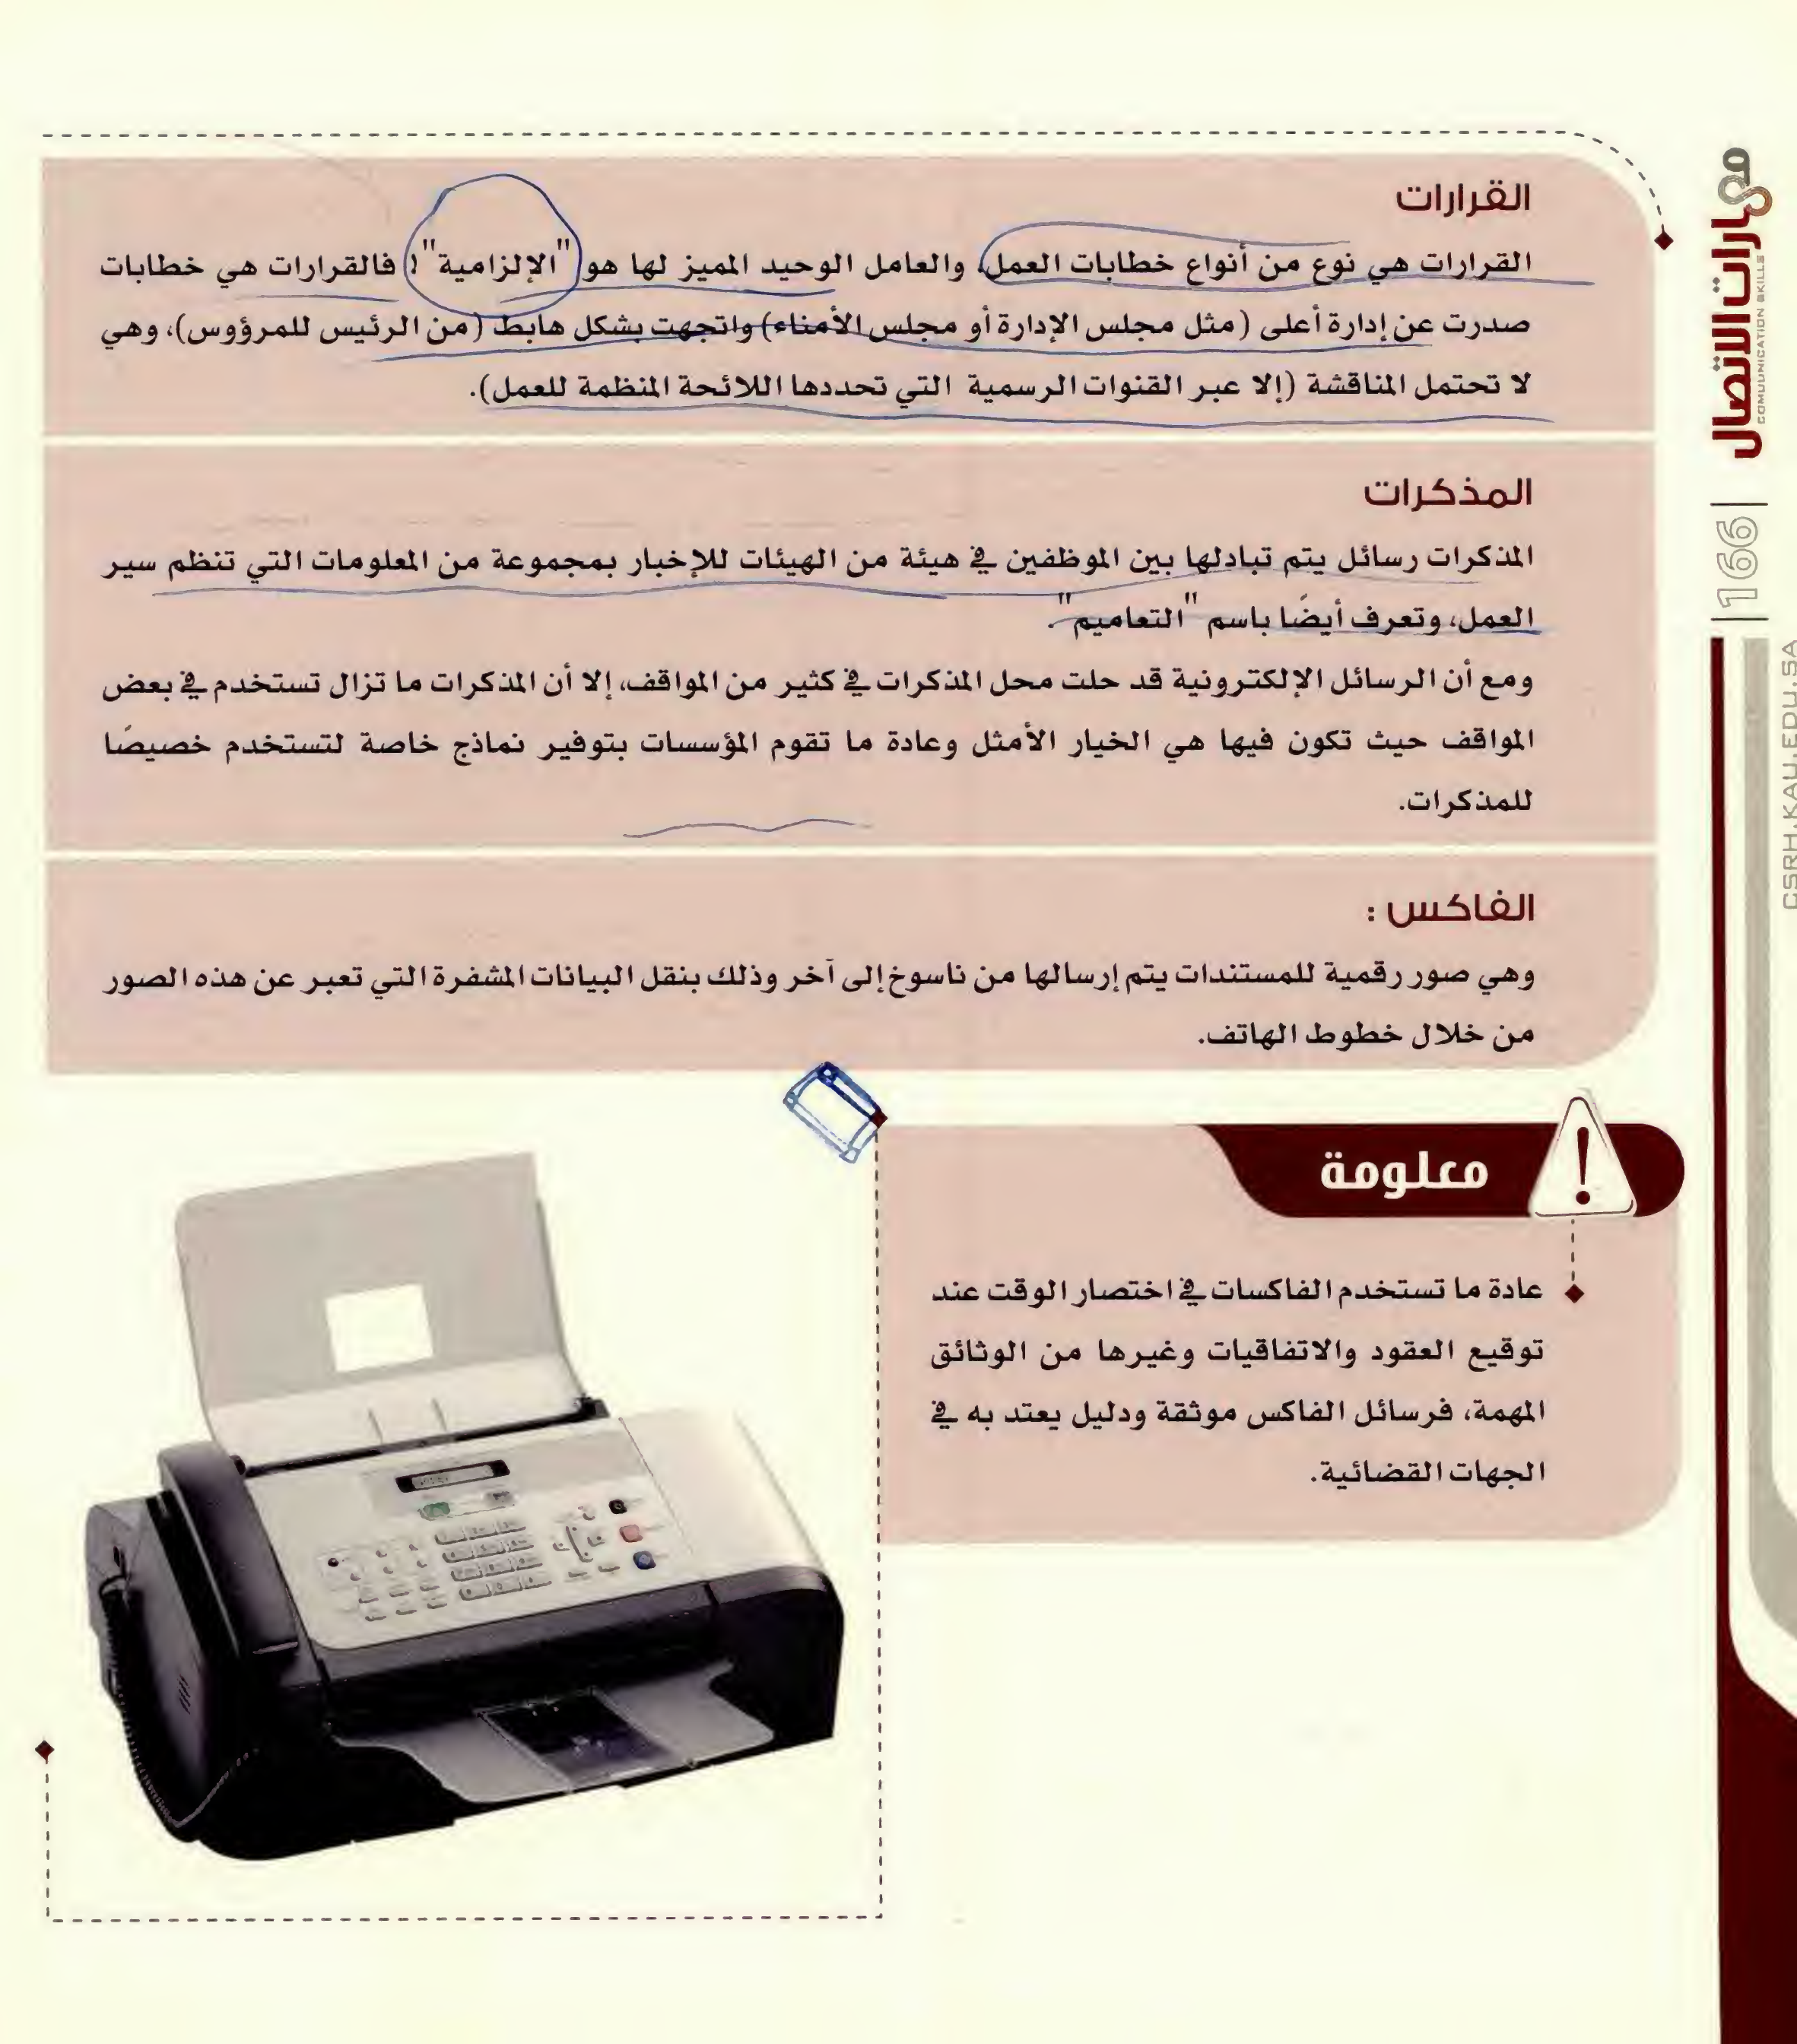 القرارات
القرارات هي نوع من أنواع خطابات العمل، والعامل الوحيد المميز لها هو "الإلزامية"؛ فالقرارات هي خطابات
صدرت عن إدارة أعلى (مثل مجلس الإدارة أو مجلس الأمناء) واتجهت بشكل هابط (من الرئيس للمرؤوس)، وهي
لا تحتمل المناقشة (إلا عبر القنوات الرسمية التي تحددها اللائحة المنظمة للعمل).
المذكرات
المذكرات رسائل يتم تبادلها بين الموظفين في هيئة من الهيئات للإخبار بمجموعة من المعلومات التي تنظم سير
العمل، وتعرف أيضًا باسم "التعاميم".
ومع أن الرسائل الإلكترونية قد حلت محل المذكرات في كثير من المواقف، إلا أن المذكرات ما تزال تستخدم في بعض
المواقف حيث تكون فيها هي الخيار الأمثل وعادة ما تقوم المؤسسات بتوفير نماذج خاصة لتستخدم خصيصًا
للمذكرات.
الفاكس :
وهي صور رقمية للمستندات يتم إرسالها من ناسوخ إلى آخر وذلك بنقل البيانات المشفرة التي تعبر عن هذه الصور
من خلال خطوط الهاتف.
معلومة
عادة ما تستخدم الفاكسات في اختصار الوقت عند
توقيع العقود والاتفاقيات وغيرها من الوثائق
المهمة، فرسائل الفاكس موثقة ودليل يعتد به في
الجهات القضائية.
مهارات الاتصال
COMUUNICATION SKILLS
166
CSRH.KAU.EDU.SA